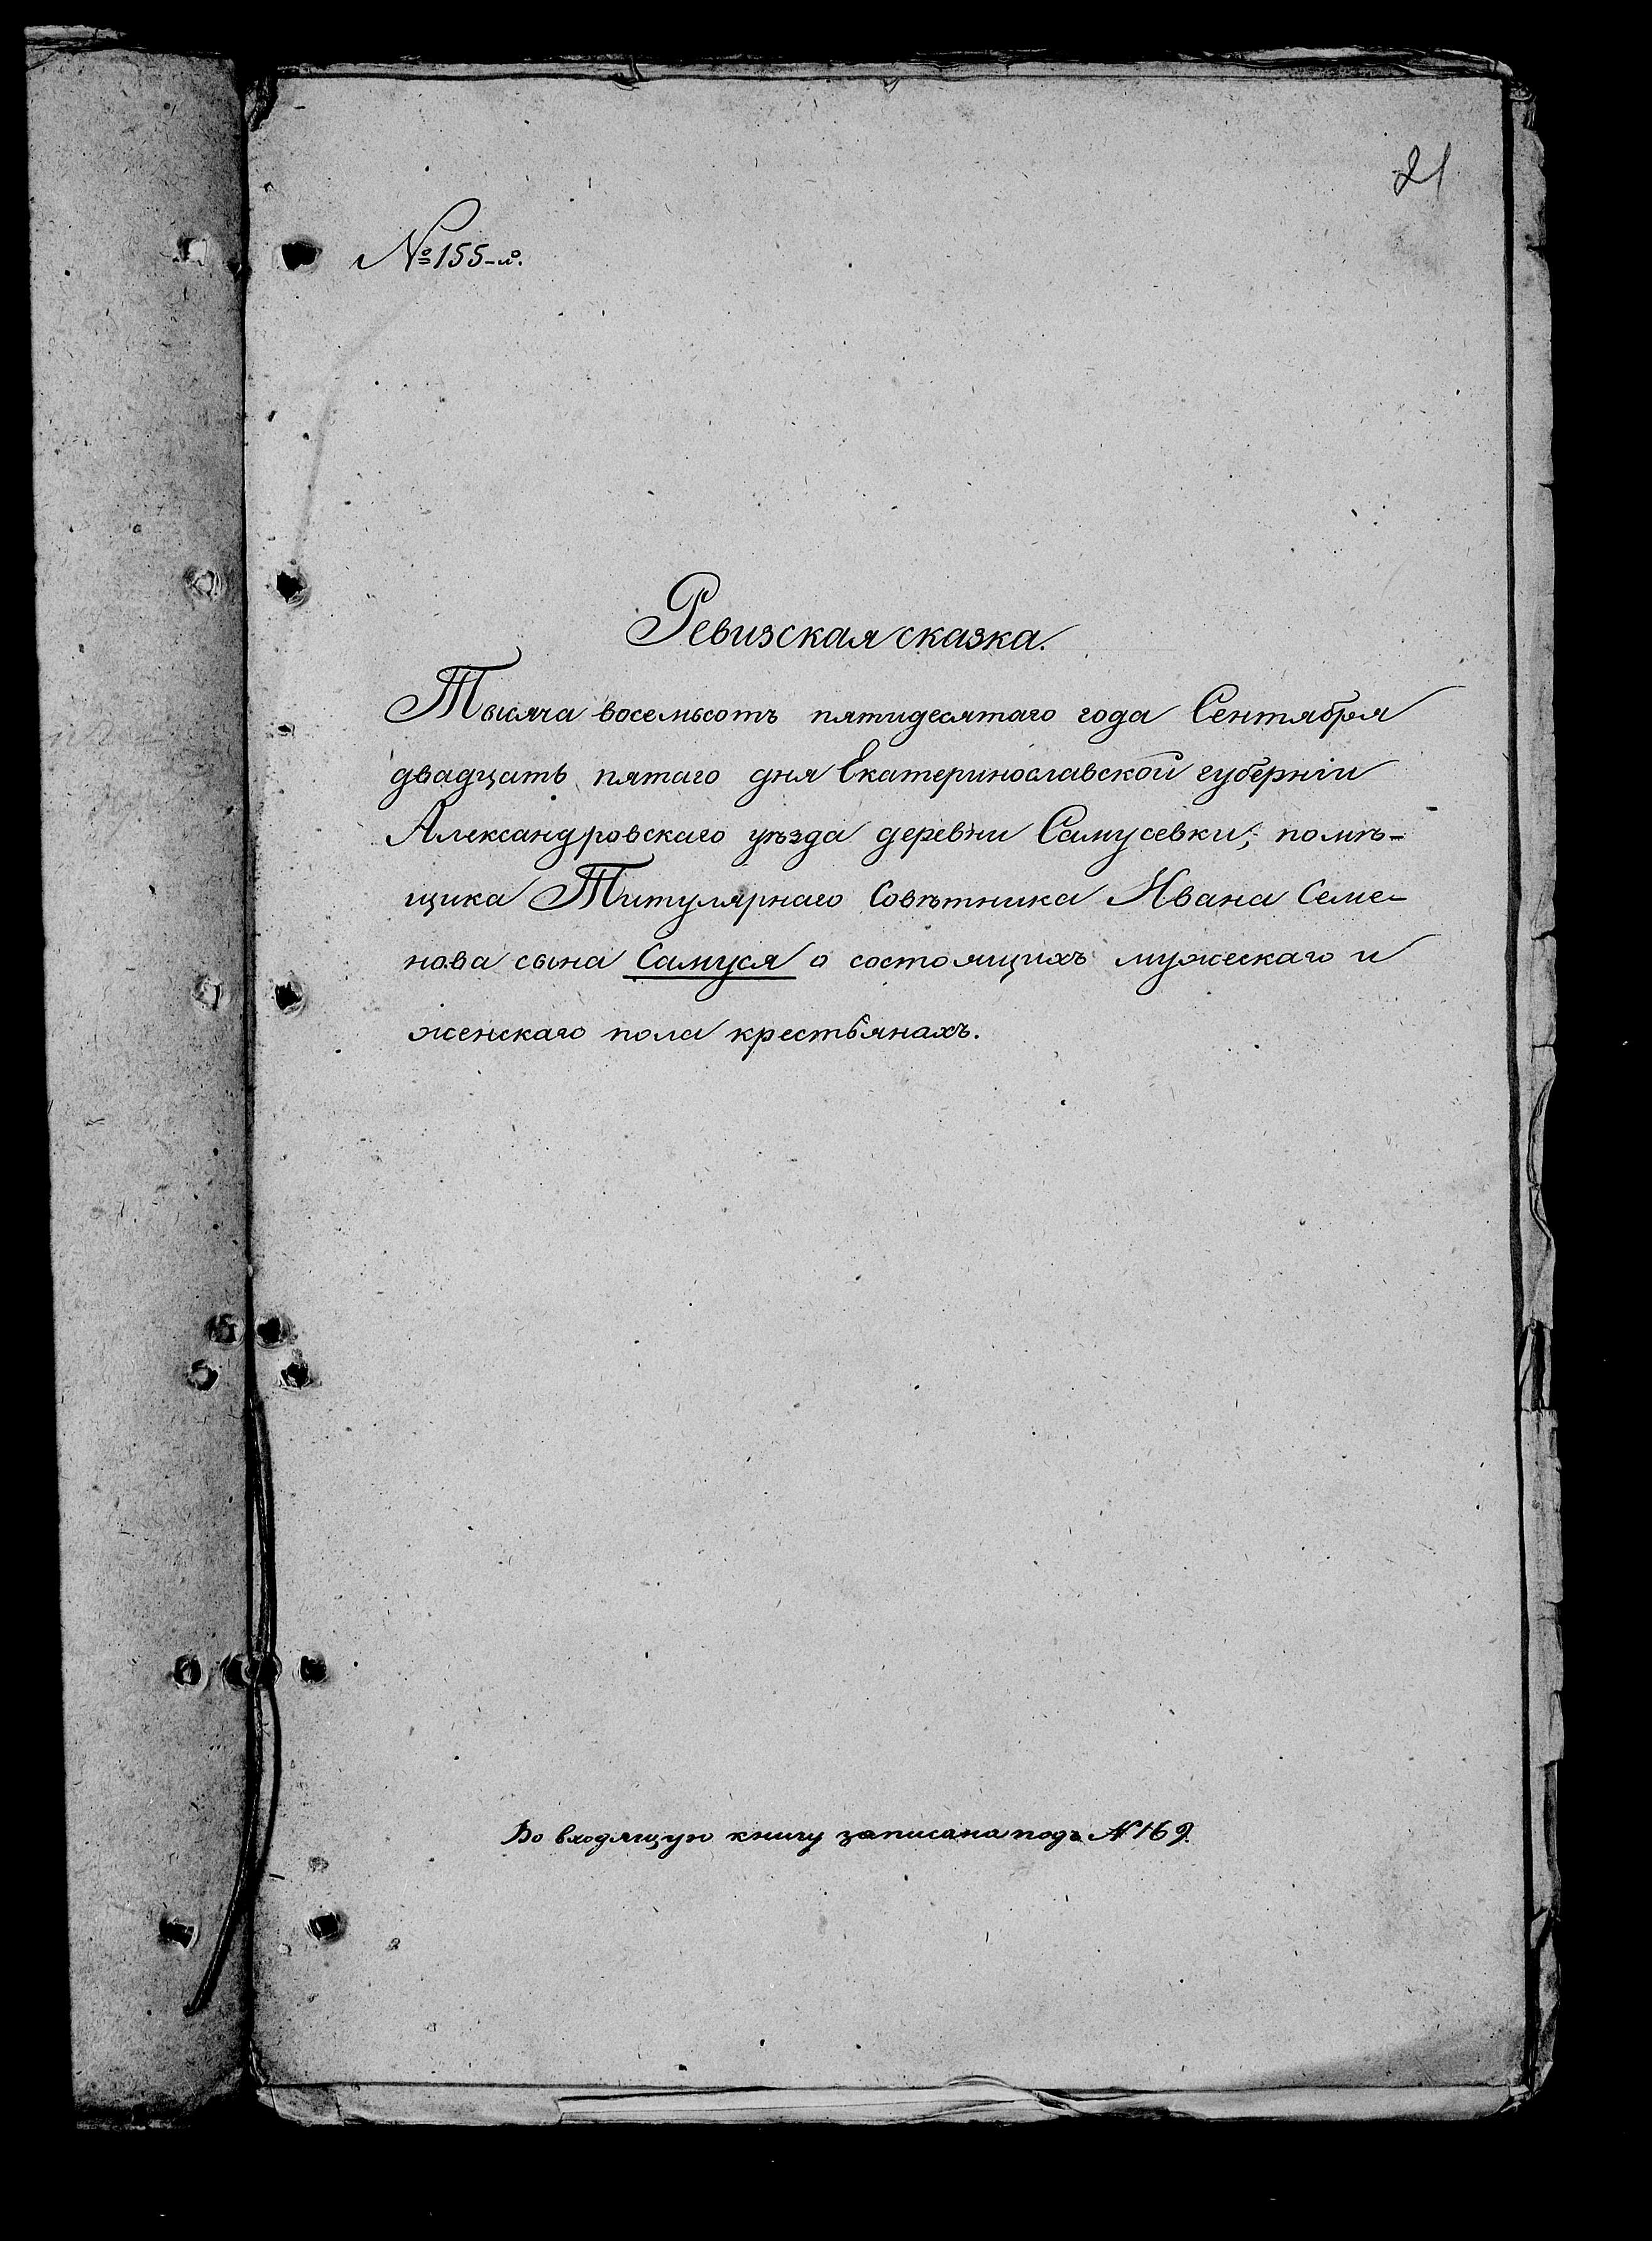 21
№ 155-й.
Ревизская сказка.
Тысяча восемьсотъ пятидесятаго года Сентября
двадцать пятаго дня Екатеринославской губерніи
Александровскаго уѣзда деревни Самусевки, помѣ-
щика Титулярнаго Совѣтника Ивана Семе-
нова сына Самуся о состоящихъ мужескаго и
женскаго пола крестьянахъ.
Во входящую книгу записана подъ № 169.